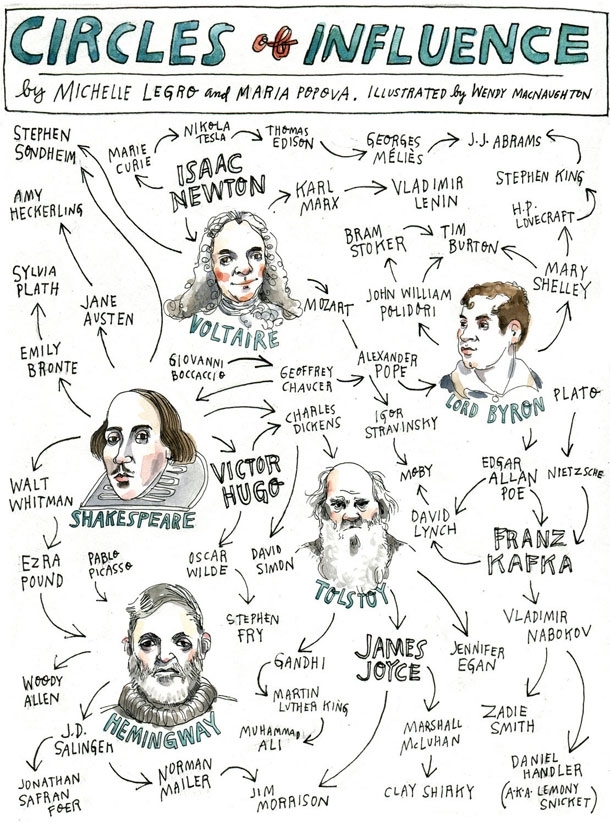 CIRCLES of INFLUENCE
by MICHELLE LEGRO and MARIA POPOVA. ILLUSTRATED by WENDY MACNAUGHTON
STEPHEN
SONDHEIM
MARIE
CURIE
NIKOLA
TESLA
THOMAS
EDISON
GEORGES
MÉLIÈS
J.J. ABRAMS
ISAAC
NEWTON
KARL
MARX
VLADIMIR
LENIN
STEPHEN KING
AMY
HECKERLING
H.P.
LOVECRAFT
BRAM
STOKER
TIM
BURTON
SYLVIA
PLATH
JANE
AUSTEN
VOLTAIRE
MOZART
JOHN WILLIAM
POLIDORI
MARY
SHELLEY
EMILY
BRONTE
GIOVANNI
BOCCACCIO
GEOFFREY
CHAUCER
ALEXANDER
POPE
LORD BYRON
PLATO
CHARLES
DICKENS
IGOR
STRAVINSKY
WALT
WHITMAN
SHAKESPEARE
VICTOR
HUGO
MOBY
EDGAR
ALLAN
POE
NIETZSCHE
DAVID
LYNCH
EZRA
POUND
PABLO
PICASSO
OSCAR
WILDE
DAVID
SIMON
TOLSTOY
FRANZ
KAFKA
STEPHEN
FRY
VLADIMIR
NABOKOV
WOODY
ALLEN
GANDHI
JAMES
JOYCE
JENNIFER
EGAN
MARTIN
LUTHER KING
HEMINGWAY
MUHAMMAD
ALI
ZADIE
SMITH
J.D.
SALINGER
MARSHALL
McLUHAN
JONATHAN
SAFRAN
FOER
NORMAN
MAILER
JIM
MORRISON
CLAY SHIRKY
DANIEL
HANDLER
(A.K.A. LEMONY
SNICKET)